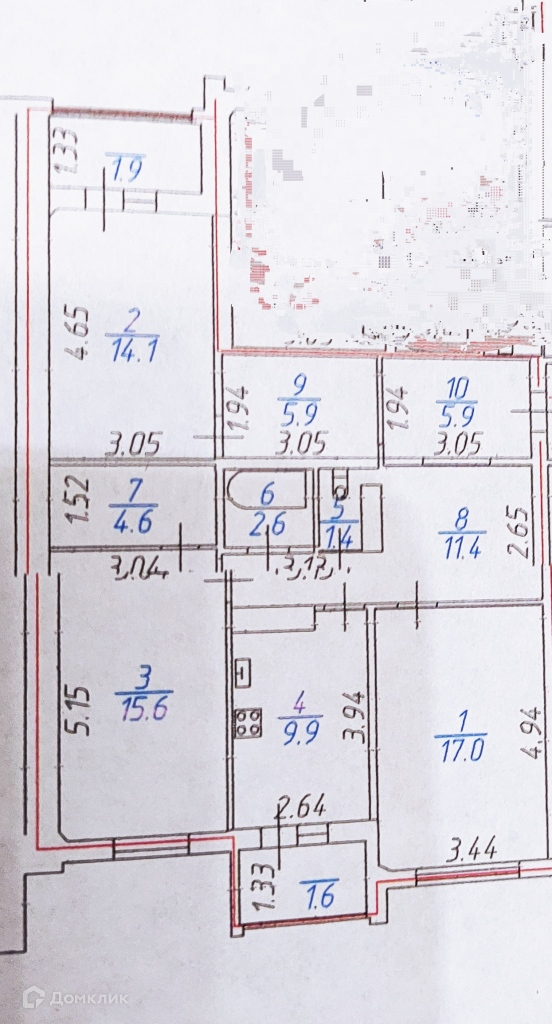 1.33
1.9
4.65
2
14.1
3.05
1.94
9
5.9
3.05
1.94
10
5.9
3.05
1.52
7
4.6
3.04
6
2.6
5
1.4
3.13
8
11.4
2.65
5.15
3
15.6
4
9.9
3.94
2.64
1
17.0
4.94
3.44
1.33
1.6
Домклик